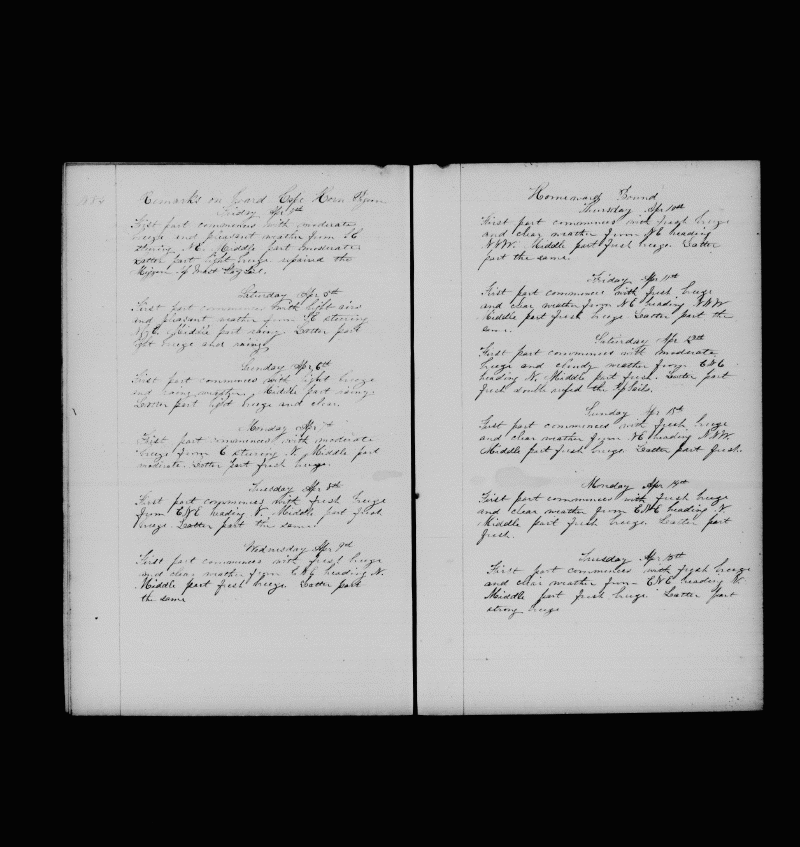 1884
Remarks on Board Cape Horn Pigeon
Friday Apr 4th
First part commences with moderate
breeze and pleasant weather from SE
steering NE. Middle part moderate
Latter part light breeze repaired the
Mizzen Top Mast Stay Sail.
Saturday Apr 5th
First part commences with light airs
and pleasant weather from SE steering
NE. Middle part rainy. Latter part
light breeze and rainy
Sunday Apr 6th
First part commences with light breeze
and rainy weather. Middle part rainy
Latter part light breeze and clear.
Monday Apr 7th
First part commences with moderate
breeze from E steering N. Middle part
moderate. Latter part fresh breeze.
Tuesday Apr 8th
First part commences with fresh breeze
from ENE heading N. Middle part fresh
breeze. Latter part the same.
Wednesday Apr 9th
First part commences with fresh breeze
and clear weather from ENE heading N.
Middle part fresh breeze. Latter part
the same
Homeward Bound
Thursday Apr 10th
First part commences with fresh breeze
and clear weather from NE heading
NNW. Middle part fresh breeze. Latter
part the same.
Friday Apr 11th
First part commences with fresh breeze
and clear weather from NE heading NNW
Middle part fresh breeze Latter part the
same.
Saturday Apr 12th
First part commences with moderate
breeze and cloudy weather from ENE
heading N. Middle part fresh. Latter part
fresh reefed the Tpsails.
Sunday Apr 13th
First part commences with fresh breeze
and clear weather from NE heading NNW.
Middle part fresh breeze. Latter part fresh.
Monday Apr 14th
First part commences with fresh breeze
and clear weather from ENE heading N
Middle part fresh breeze. Latter part
fresh.
Tuesday Apr 15th
First part commences with fresh breeze
and clear weather from ENE heading N.
Middle part fresh breeze Latter part
strong breeze